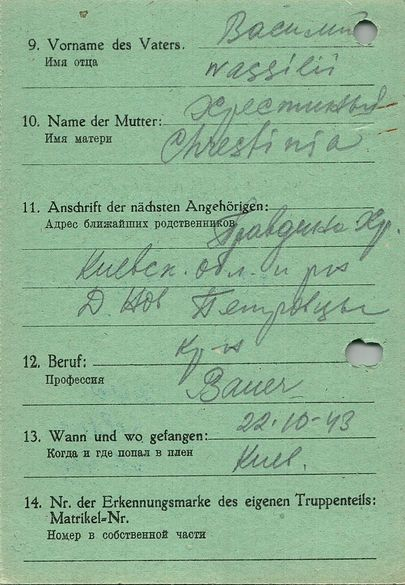 Василий
9. Vorname des Vaters.
Имя отца
Wassilii
10. Name der Mutter:
Имя матери
Chrestinia
11. Anschrift der nächsten Angehörigen:
Адрес ближайших родственников
Киевск. обл.
Д. Нов Петровцы
12. Beruf:
Профессия
Bauer
13. Wann und wo gefangen: 22-10-43
Когда и где попал в плен Киев.
14. Nr. der Erkennungsmarke des eigenen Truppenteils:
Matrikel-Nr.
Номер в собственной части